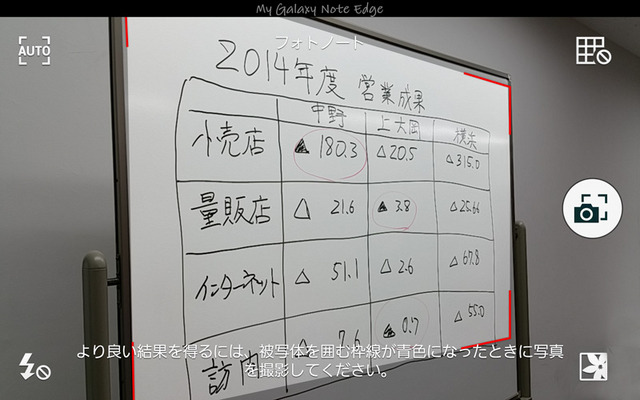 My Galaxy Note Edge
AUTO
フォトノート
2014年度 営業成果
中野 上大岡 横浜
小売店 ▲ 180.3 △ 20.5 △ 315.0
量販店 △ 21.6 ▲ 3.8 △ 25.66
インターネット △ 51.1 △ 2.6 △ 67.8
訪問 △ 7.6 ▲ 0.7 △ 55.0
より良い結果を得るには、被写体を囲む枠線が青色になったときに写真
を撮影してください。